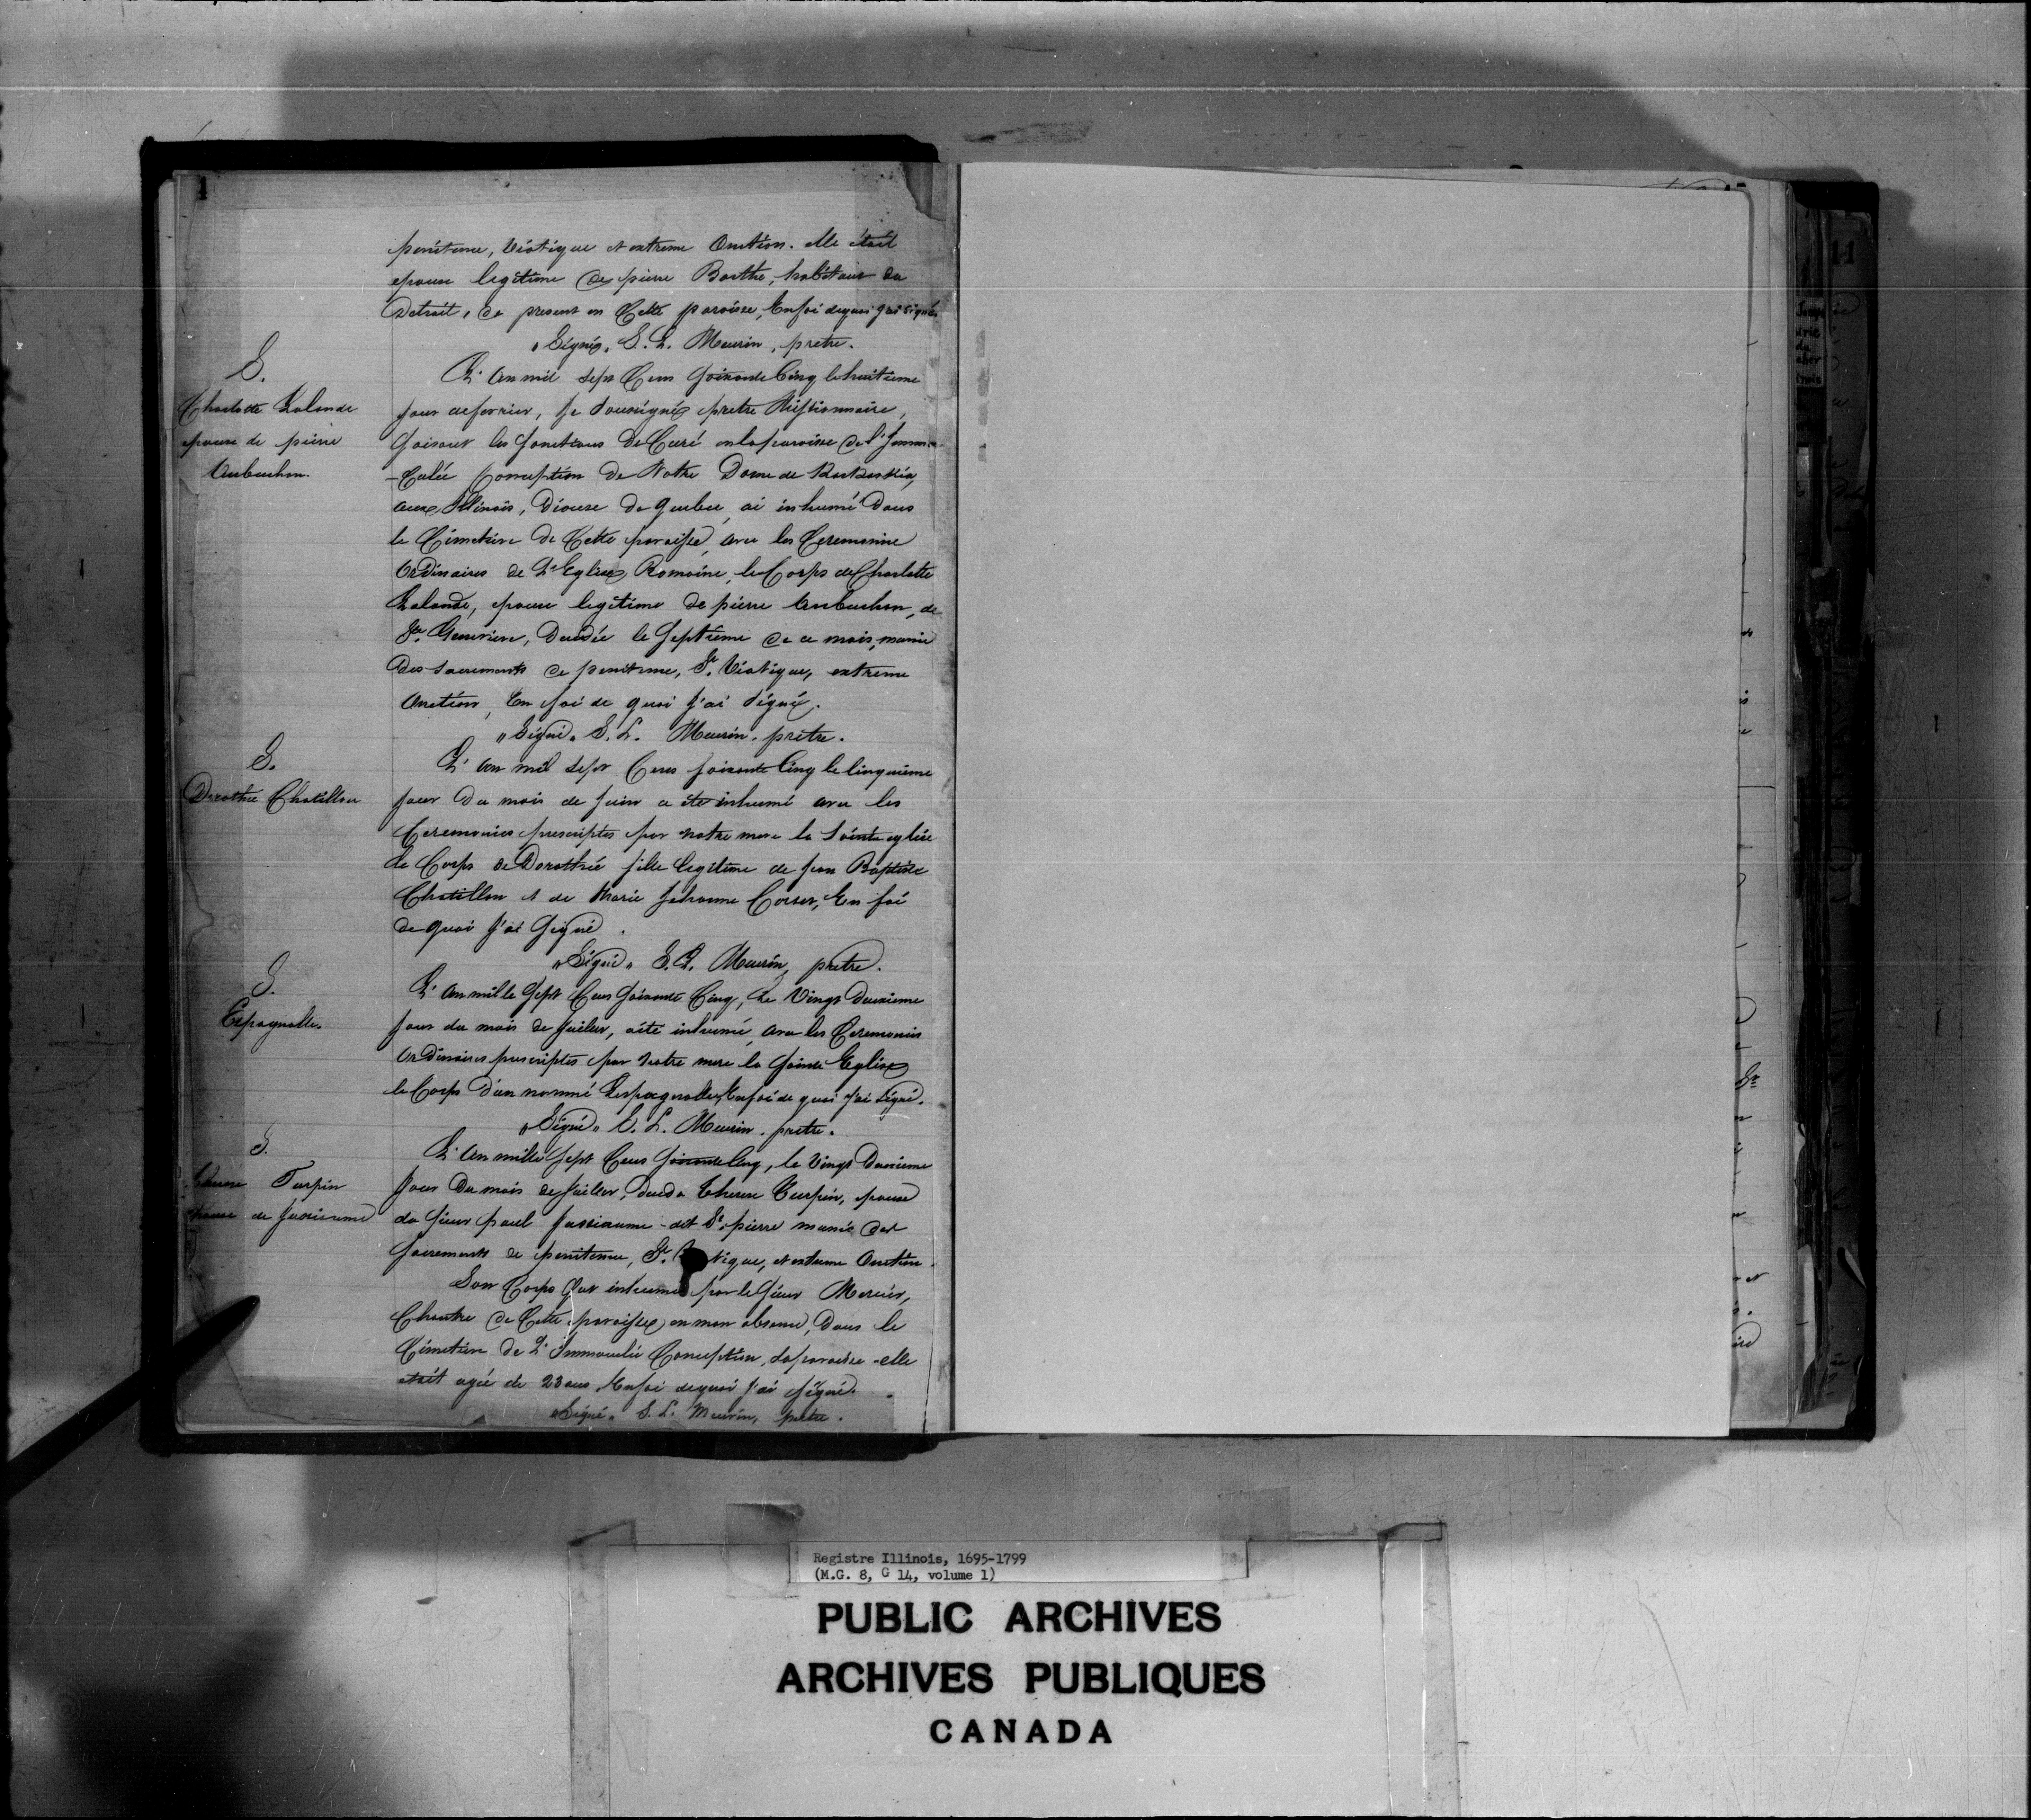 1
penitence, Viatique et extreme Onction. elle était
epouse legitime de pierre Barthe, habitant du
Detroit, de present en Cette paroisse, En foi de quoi J'ai signé
"Signé" S. L. Meurin, pretre.
S.
Charlotte Lalande
epouse de pierre
Aubuchon.
L'An mil sept Cens soixante Cinq le huitieme
jour de fevrier, Je soussigné pretre Missionnaire,
faisant les fonctions De Curé en la paroisse de l'Imma
-Culée Conception de Notre Dame de Kaskaskia,
aux Illinois, Diocese de quebec, ai inhumé Dans
le Cimetiere de Cette paroisse, avec les Ceremonies
Ordinaires de L'Eglise Romaine, le Corps de Charlotte
Lalande, epouse legitime de pierre Aubuchon, de
Ste. Genevieve, Decedée le Septieme de ce mois, munie
des sacrements de penitence, St. Viatique, extreme
Onction, En foi de quoi J'ai signé.
"Signé" S. L. Meurin, prêtre.
S.
Dorothée Chatillon
L'An mil Sept Cens soixante Cinq le cinquieme
jour Du mois de Juin a été inhumé avec les
Ceremonies prescriptes par notre mere la Sainte eglise
le Corps de Dorothée fille legitime de jean Baptiste
Chatillon et de Marie Jehanne Corset, En foi
de quoi J'ai Signé.
"Signé" S. L. Meurin, pretre.
S.
Espagnolle.
L'An mille Sept Cens Soixante Cinq, Le Vingt Deuxieme
jour du mois de Juillet, a été inhumé, avec les Ceremonies
Ordinaires prescriptes par Notre mere la Sainte Eglise
le Corps d'un nommé Lespagnolle, En foi de quoi J'ai Signé.
"Signé" S. L. Meurin, pretre.
S.
Therese Turpin
epouse de Jussiaume
L'An mille Sept Cens Soixante Cinq, le Vingt Deuxieme
jour Du mois de Juillet, deceda Therese Turpin, epouse
du sieur paul Jussiaume dit St. pierre munie des
sacrements de penitence, St. Viatique, et extreme Onction.
Son Corps fut inhumé par le sieur Mercier,
Chantre de Cette paroisse, en mon absence, Dans le
Cimetiere De L'Immaculée Conception, sa paroisse. elle
etait agée de 23 ans, En foi de quoi J'ai signé.
"Signé" S. L. Meurin, pretre.
11
Registre Illinois, 1695-1799
(M.G. 8, G 14, volume 1)
PUBLIC ARCHIVES
ARCHIVES PUBLIQUES
CANADA